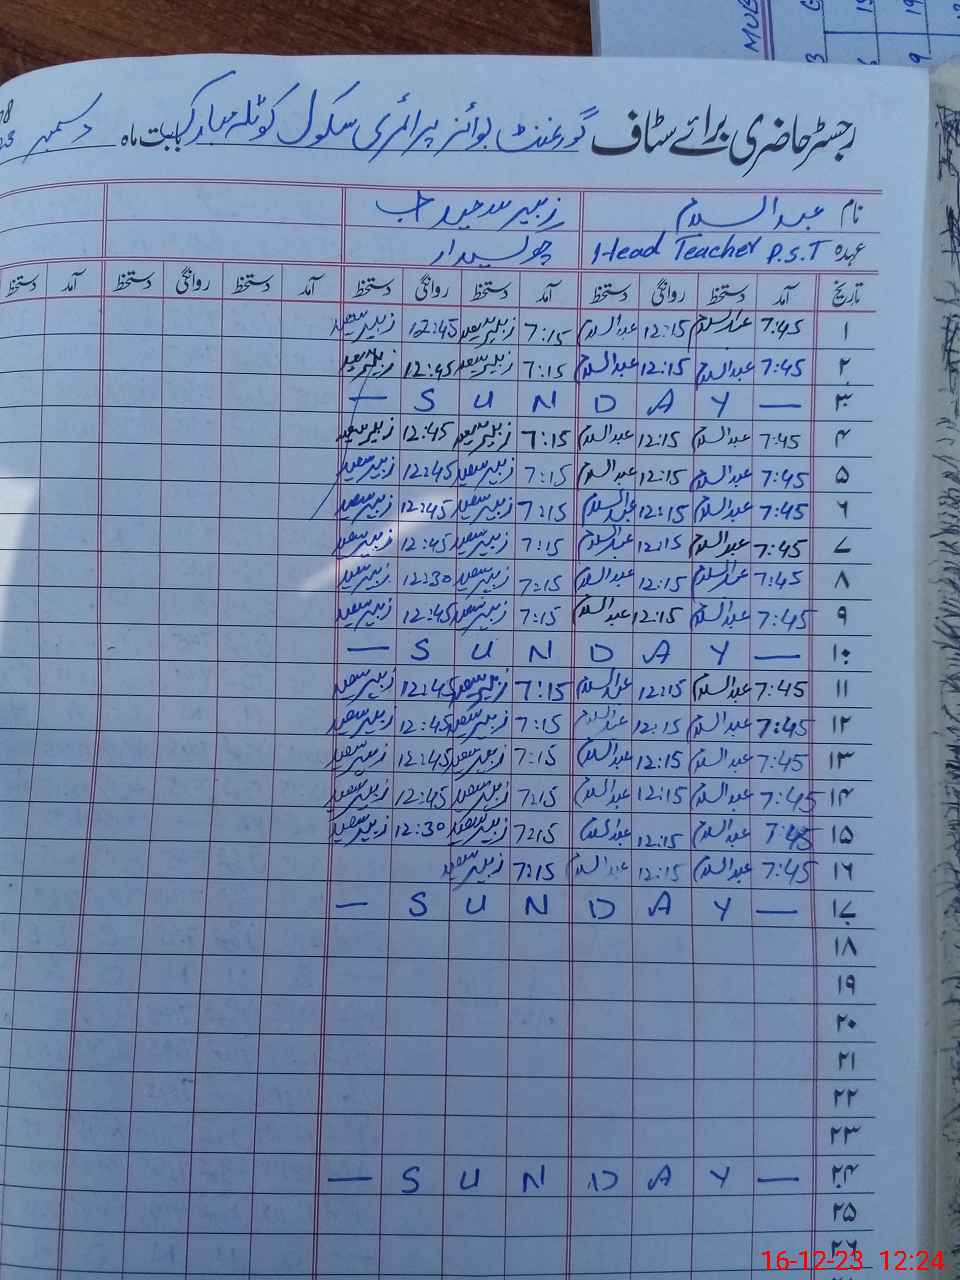 رجسٹر حاضری برائے سٹاف گورنمنٹ بوائز پرائمری سکول کوٹلہ مبارک بابت ماہ دسمبر
نام عبدالسلام زبیر سعید
عہدہ Head Teacher P.S.T چوکیدار
تاریخ آمد دستخط روانگی دستخط آمد دستخط روانگی دستخط آمد دستخط روانگی دستخط آمد دستخط
۱ 7:45 عبدالسلام 12:15 عبدالسلام 7:15 زبیر سعید 12:45 زبیر سعید
۲ 7:45 عبدالسلام 12:15 عبدالسلام 7:15 زبیر سعید 12:45 زبیر سعید
۳ — S U N D A Y —
۴ 7:45 عبدالسلام 12:15 عبدالسلام 7:15 زبیر سعید 12:45 زبیر سعید
۵ 7:45 عبدالسلام 12:15 عبدالسلام 7:15 زبیر سعید 12:45 زبیر سعید
۶ 7:45 عبدالسلام 12:15 عبدالسلام 7:15 زبیر سعید 12:45 زبیر سعید
۷ 7:45 عبدالسلام 12:15 عبدالسلام 7:15 زبیر سعید 12:45 زبیر سعید
۸ 7:45 عبدالسلام 12:15 عبدالسلام 7:15 زبیر سعید 12:30 زبیر سعید
۹ 7:45 عبدالسلام 12:15 عبدالسلام 7:15 زبیر سعید 12:45 زبیر سعید
۱۰ — S U N D A Y —
۱۱ 7:45 عبدالسلام 12:15 عبدالسلام 7:15 زبیر سعید 12:45 زبیر سعید
۱۲ 7:45 عبدالسلام 12:15 عبدالسلام 7:15 زبیر سعید 12:45 زبیر سعید
۱۳ 7:45 عبدالسلام 12:15 عبدالسلام 7:15 زبیر سعید 12:45 زبیر سعید
۱۴ 7:45 عبدالسلام 12:15 عبدالسلام 7:15 زبیر سعید 12:45 زبیر سعید
۱۵ 7:45 عبدالسلام 12:15 عبدالسلام 7:15 زبیر سعید 12:30 زبیر سعید
۱۶ 7:45 عبدالسلام 12:15 عبدالسلام 7:15 زبیر سعید
۱۷ — S U N D A Y —
۱۸
۱۹
۲۰
۲۱
۲۲
۲۳
۲۴ — S U N D A Y —
۲۵
۲۶
16-12-23 12:24